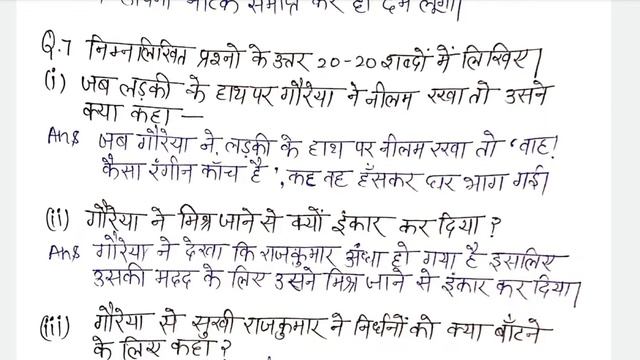 नाटक समाप्त कर ही दम लूँगा।
Q.7 निम्नलिखित प्रश्नो के उत्तर 20-20 शब्दों में लिखिए।
(i) जब लड़की के हाथ पर गौरैया ने नीलम रखा तो उसने
क्या कहा —
Ans जब गौरैया ने लड़की के हाथ पर नीलम रखा तो 'वाह!
कैसा रंगीन काँच है', कह वह हँसकर घर भाग गई।
(ii) गौरैया ने मिश्र जाने से क्यों इंकार कर दिया ?
Ans गौरैया ने देखा कि राजकुमार अंधा हो गया है इसलिए
उसकी मदद के लिए उसने मिश्र जाने से इंकार कर दिया।
(iii) गौरैया से सुखी राजकुमार ने निर्धनों को क्या बाँटने
के लिए कहा ?